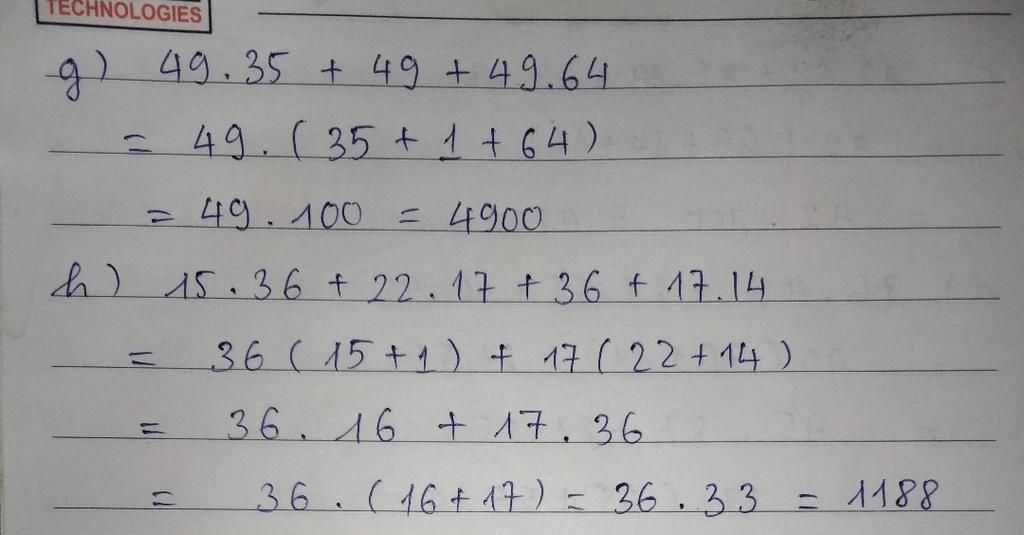 TECHNOLOGIES
g) 49.35 + 49 + 49.64
= 49.(35 + 1 + 64)
= 49.100 = 4900
h) 15.36 + 22.17 + 36 + 17.14
= 36(15+1) + 17(22+14)
= 36.16 + 17.36
= 36.(16+17) = 36.33 = 1188